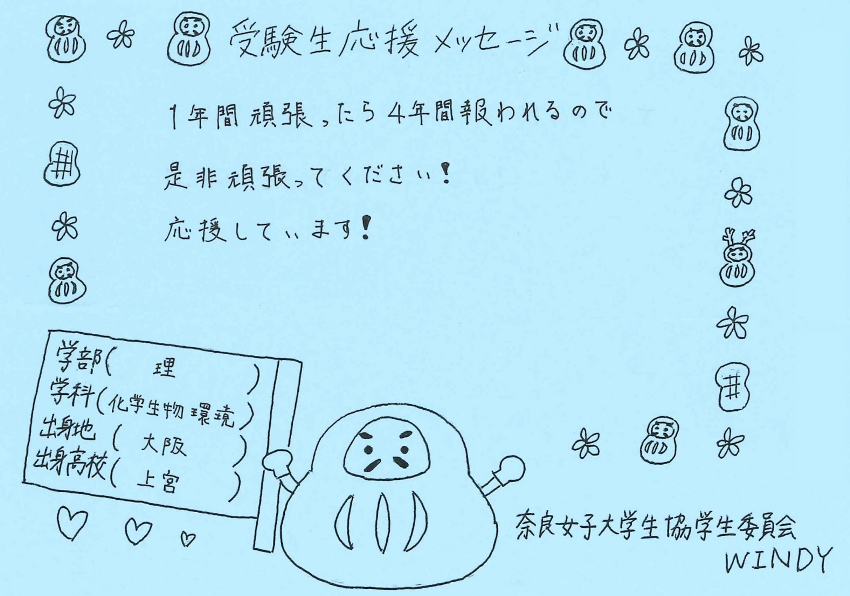 受験生応援メッセージ
1年間頑張ったら4年間報われるので
是非頑張ってください!
応援しています!
学部( 理 )
学科(化学生物環境)
出身地( 大阪 )
出身高校( 上宮 )
奈良女子大学生協学生委員会
WINDY